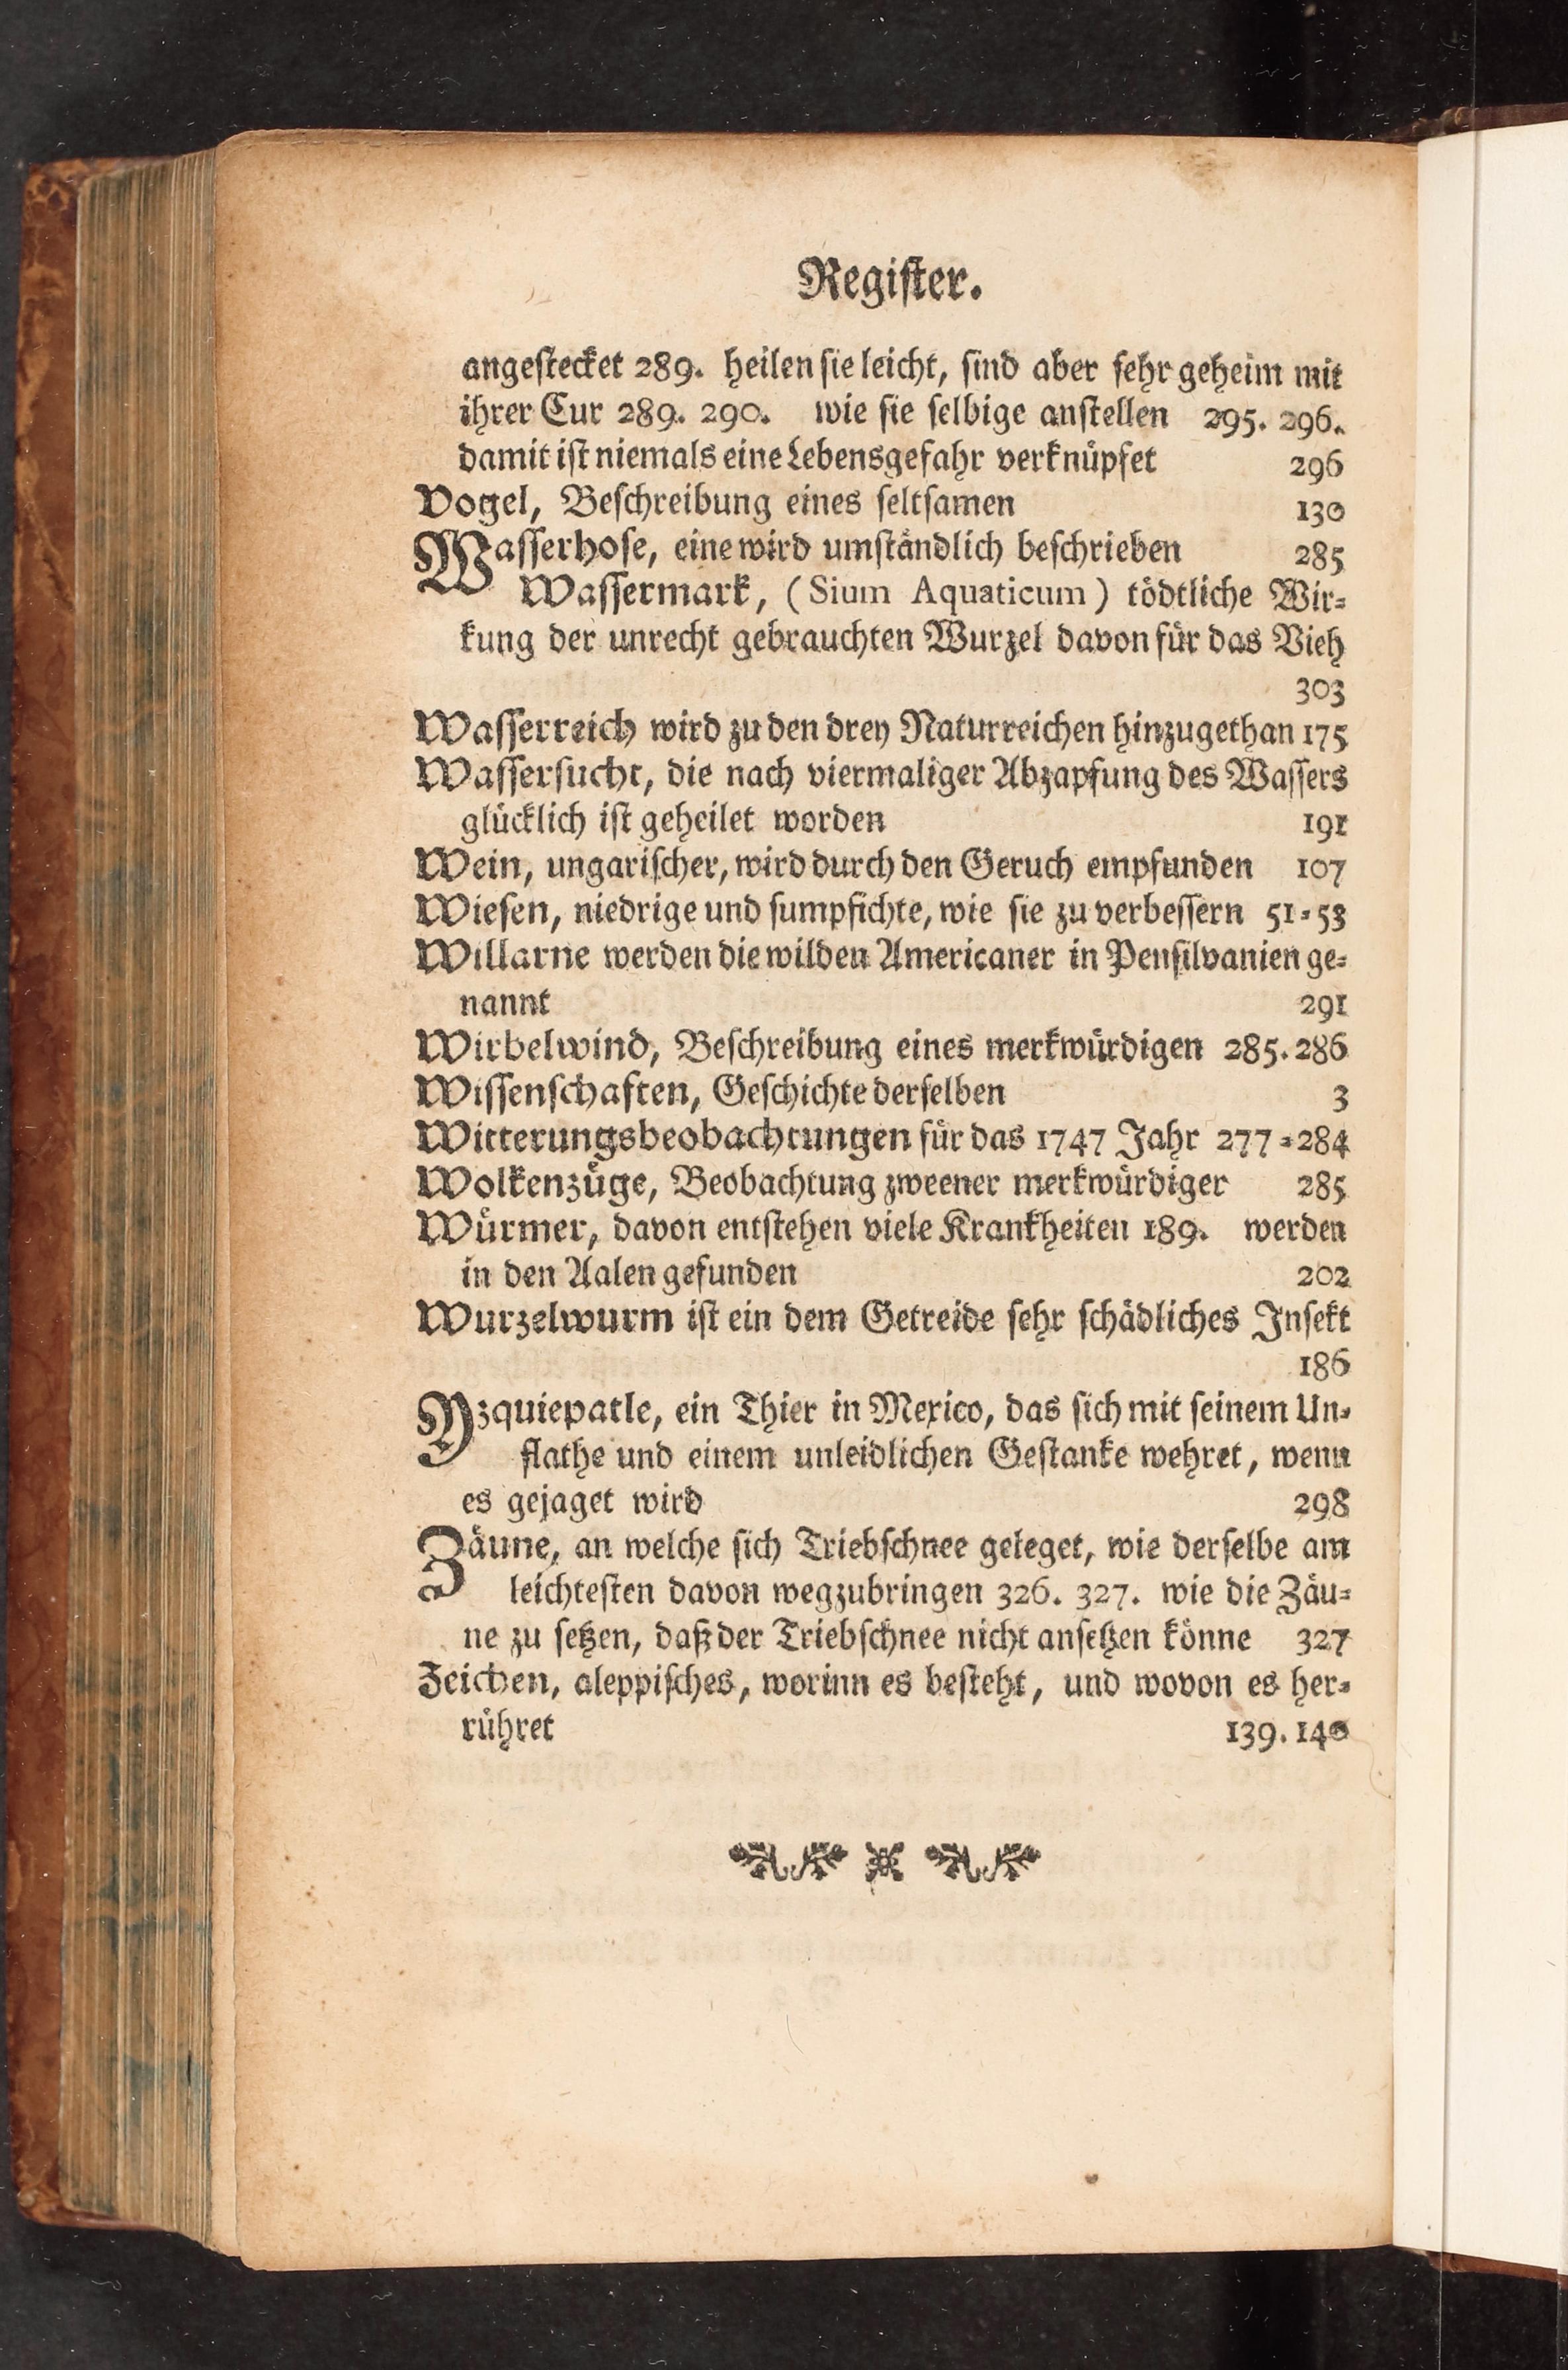 Register.
angestecket 289. heilen sie leicht, sind aber sehr geheim mit
ihrer Cur 289. 290. wie sie selbige anstellen 295. 296.
damit ist niemals eine Lebensgefahr verknüpfet 296
Vogel, Beschreibung eines seltsamen 130
Wasserhose, eine wird umständlich beschrieben 285
Wassermark, (Sium Aquaticum) tödtliche Wir-
kung der unrecht gebrauchten Wurzel davon für das Vieh
303
Wasserreich wird zu den drey Naturreichen hinzugethan 175
Wassersucht, die nach viermaliger Abzapfung des Wassers
glücklich ist geheilet worden 191
Wein, ungarischer, wird durch den Geruch empfunden 107
Wiesen, niedrige und sumpfichte, wie sie zu verbessern 51-53
Willarne werden die wilden Americaner in Pensilvanien ge-
nannt 291
Wirbelwind, Beschreibung eines merkwürdigen 285. 286
Wissenschaften, Geschichte derselben 3
Witterungsbeobachtungen für das 1747 Jahr 277-284
Wolkenzüge, Beobachtung zweener merkwürdiger 285
Würmer, davon entstehen viele Krankheiten 189. werden
in den Aalen gefunden 202
Wurzelwurm ist ein dem Getreide sehr schädliches Insekt
186
Yzquiepatle, ein Thier in Mexico, das sich mit seinem Un-
flathe und einem unleidlichen Gestanke wehret, wenn
es gejaget wird 298
Zäune, an welche sich Triebschnee geleget, wie derselbe am
leichtesten davon wegzubringen 326. 327. wie die Zäu-
ne zu setzen, daß der Triebschnee nicht ansetzen könne 327
Zeichen, aleppisches, worinn es besteht, und wovon es her-
rühret 139. 140